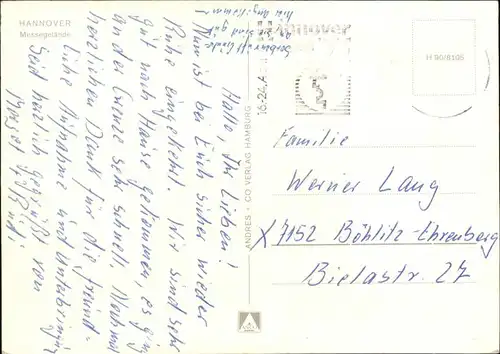 HANNOVER
Messegelände
Hallo, Ihr Lieben!
Nun ist bei Euch sicher wieder
Ruhe eingekehrt. Wir sind sehr
gut nach Hause gekommen, es ging
an der Grenze sehr schnell. Nochmal
herzlichen Dank für die freund-
liche Aufnahme und Unterbringung
Seid herzlich gegrüßt von
Margot
hier
sind gut
ANDRES + CO VERLAG HAMBURG
16.-24. A
H 90/8105
Familie
Werner Lang
X 7152 Böhlitz-Ehrenberg
Bielastr. 27